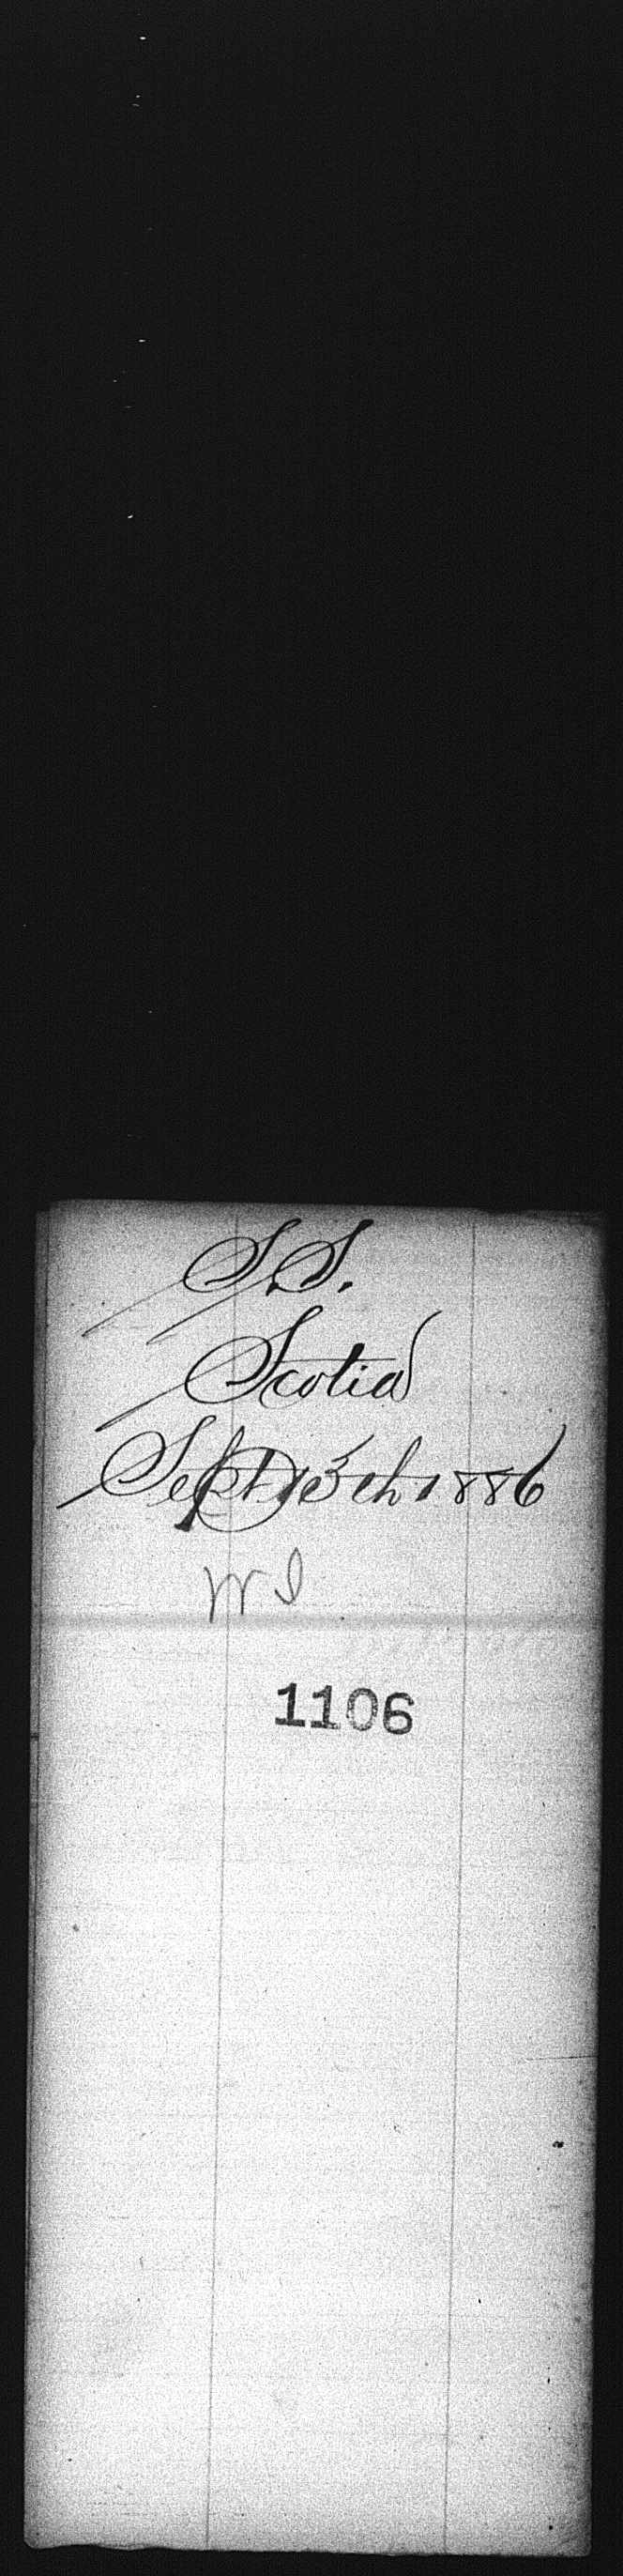 S.S.
Scotia
Sept 13th 1886
1106